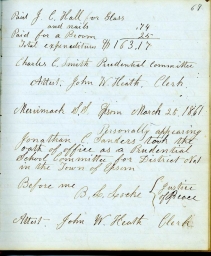 69
Paid J. C. Hall for Glass
and nails .74
Paid for a Broom .25
Total expenditures $163.17
Charles C. Smith Prudential Committee
Attest, John W. Heath, Clerk.
Merrimack S.S. Epsom March 25, 1861
Personally appearing
Jonathan C. Sanders took the
oath of office as a Prudential
School Committee for District No
in the Town of Epsom
Before me
B. L. Locke { Justice
of Peace
Attest. John W. Heath Clerk